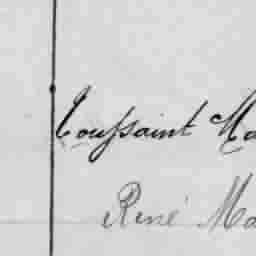 Toussaint Ma
René Ma